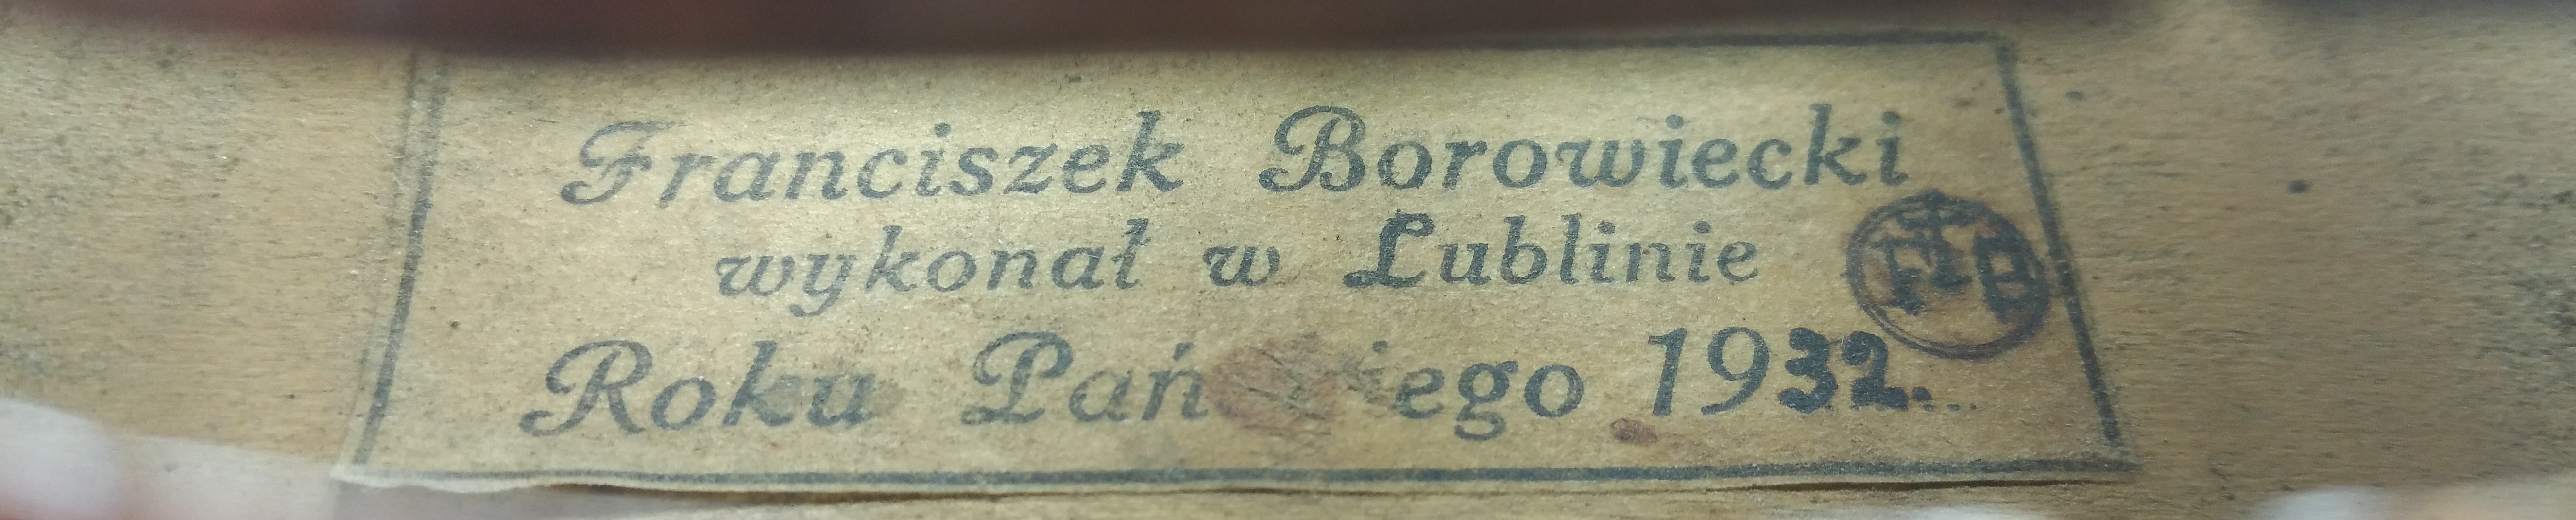 Franciszek Borowiecki
wykonał w Lublinie
FB
Roku 1932.